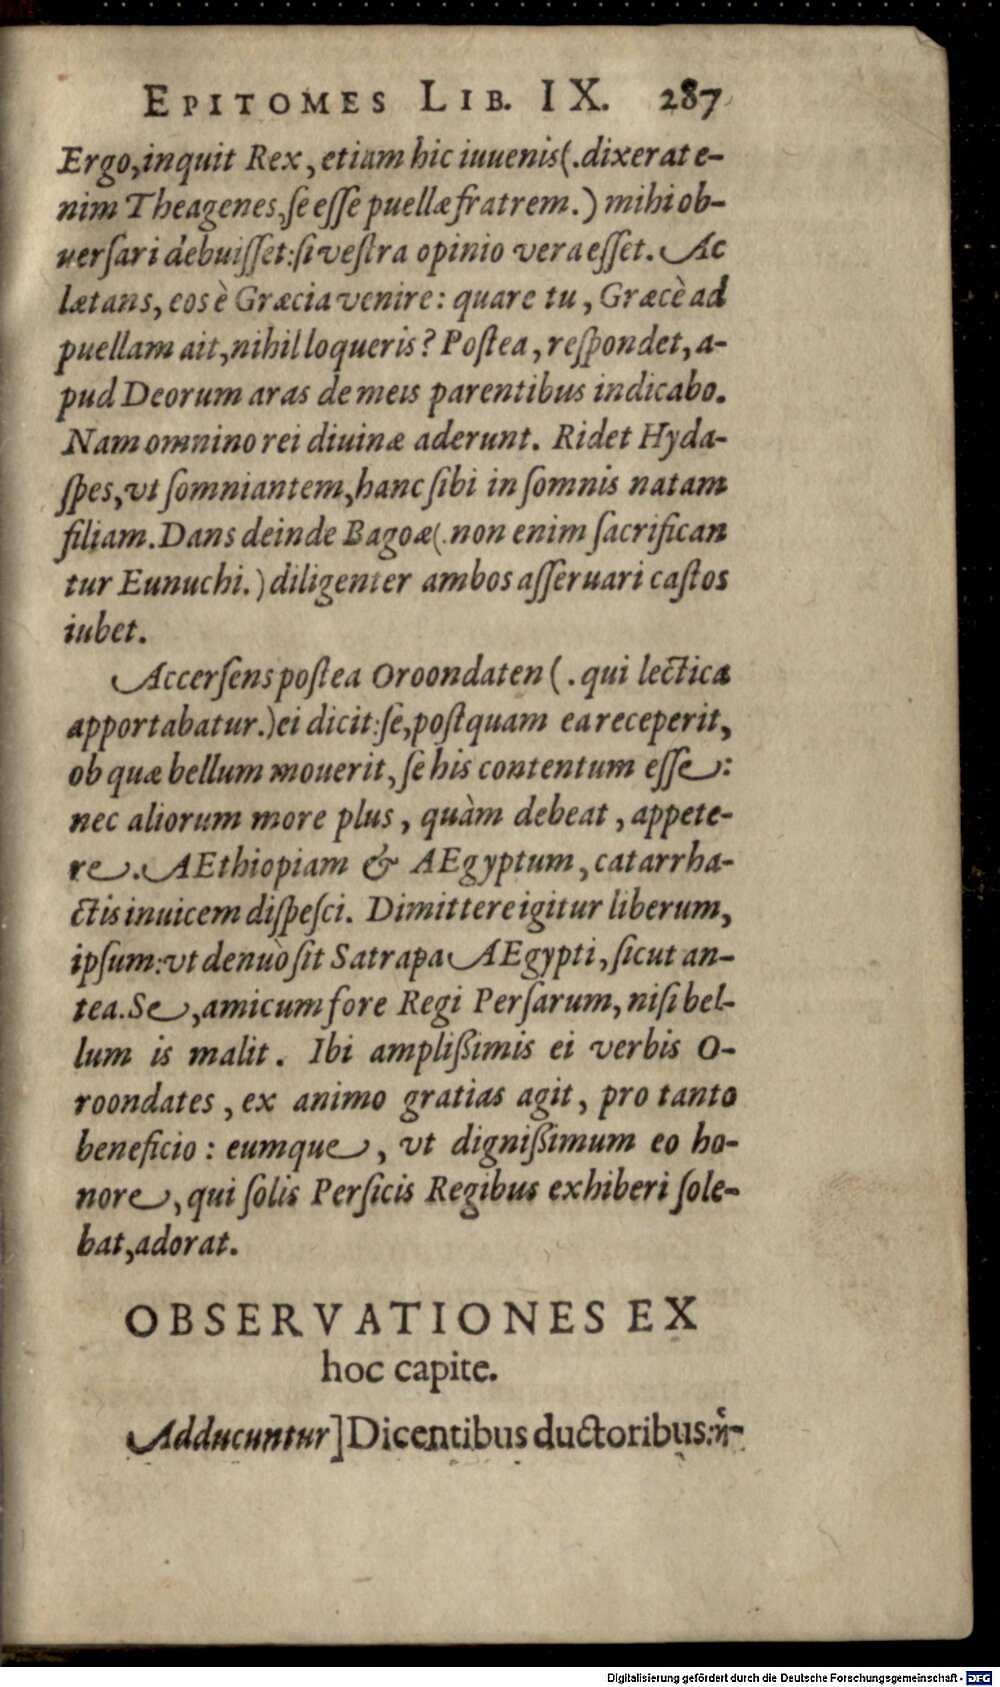 EPITOMES LIB. IX. 287
Ergo, inquit Rex, etiam hic iuuenis (. dixerat e-
nim Theagenes, se esse puellæ fratrem.) mihi ob-
uersari debuisset: si vestra opinio vera esset. Ac
lætans, eos è Græcia venire: quare tu, Græcè ad
puellam ait, nihil loqueris? Postea, respondet, a-
pud Deorum aras de meis parentibus indicabo.
Nam omnino rei diuinæ aderunt. Ridet Hyda-
spes, vt somniantem, hanc sibi in somnis natam
filiam. Dans deinde Bagoæ (. non enim sacrifican
tur Eunuchi.) diligenter ambos asseruari castos
iubet.
Accersens postea Oroondaten (. qui lectica
apportabatur.) ei dicit: se, postquam ea receperit,
ob quæ bellum mouerit, se his contentum esse:
nec aliorum more plus, quàm debeat, appete-
re. AEthiopiam & AEgyptum, catarrha-
ctis inuicem dispesci. Dimittere igitur liberum,
ipsum: vt denuò sit Satrapa AEgypti, sicut an-
tea. Se, amicum fore Regi Persarum, nisi bel-
lum is malit. Ibi amplißimis ei verbis O-
roondates, ex animo gratias agit, pro tanto
beneficio: eumque, vt dignißimum eo ho-
nore, qui solis Persicis Regibus exhiberi sole-
bat, adorat.
OBSERVATIONES EX
hoc capite.
Adducuntur] Dicentibus ductoribus:
Digitalisierung gefördert durch die Deutsche Forschungsgemeinschaft - DFG